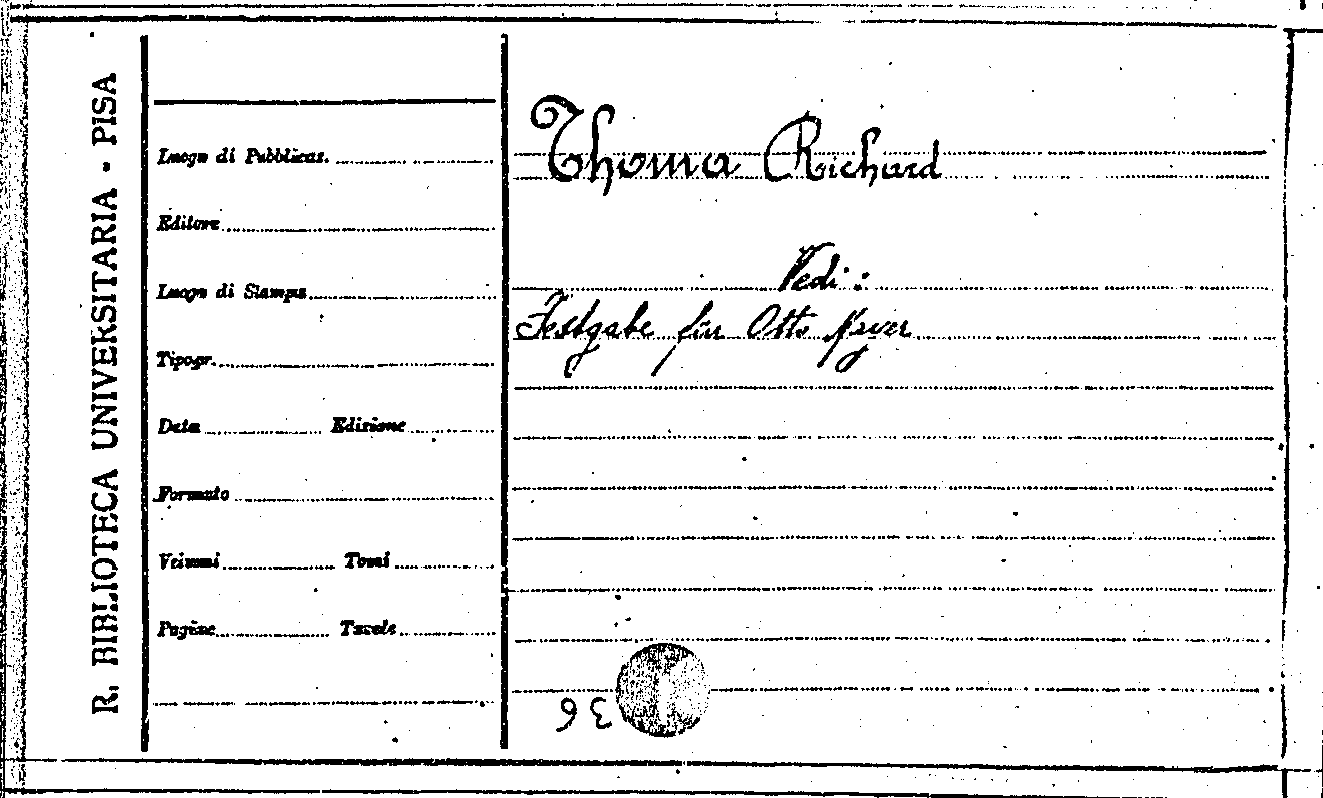 R. BIBLIOTECA UNIVERSITARIA - PISA
Luogo di Pubblicaz.
Editore
Luogo di Stampa
Tipogr.
Data Edizione
Formato
Volumi Tomi
Pagine Tavole
Thoma Richard
Vedi:
Festgabe für Otto Mayer
36